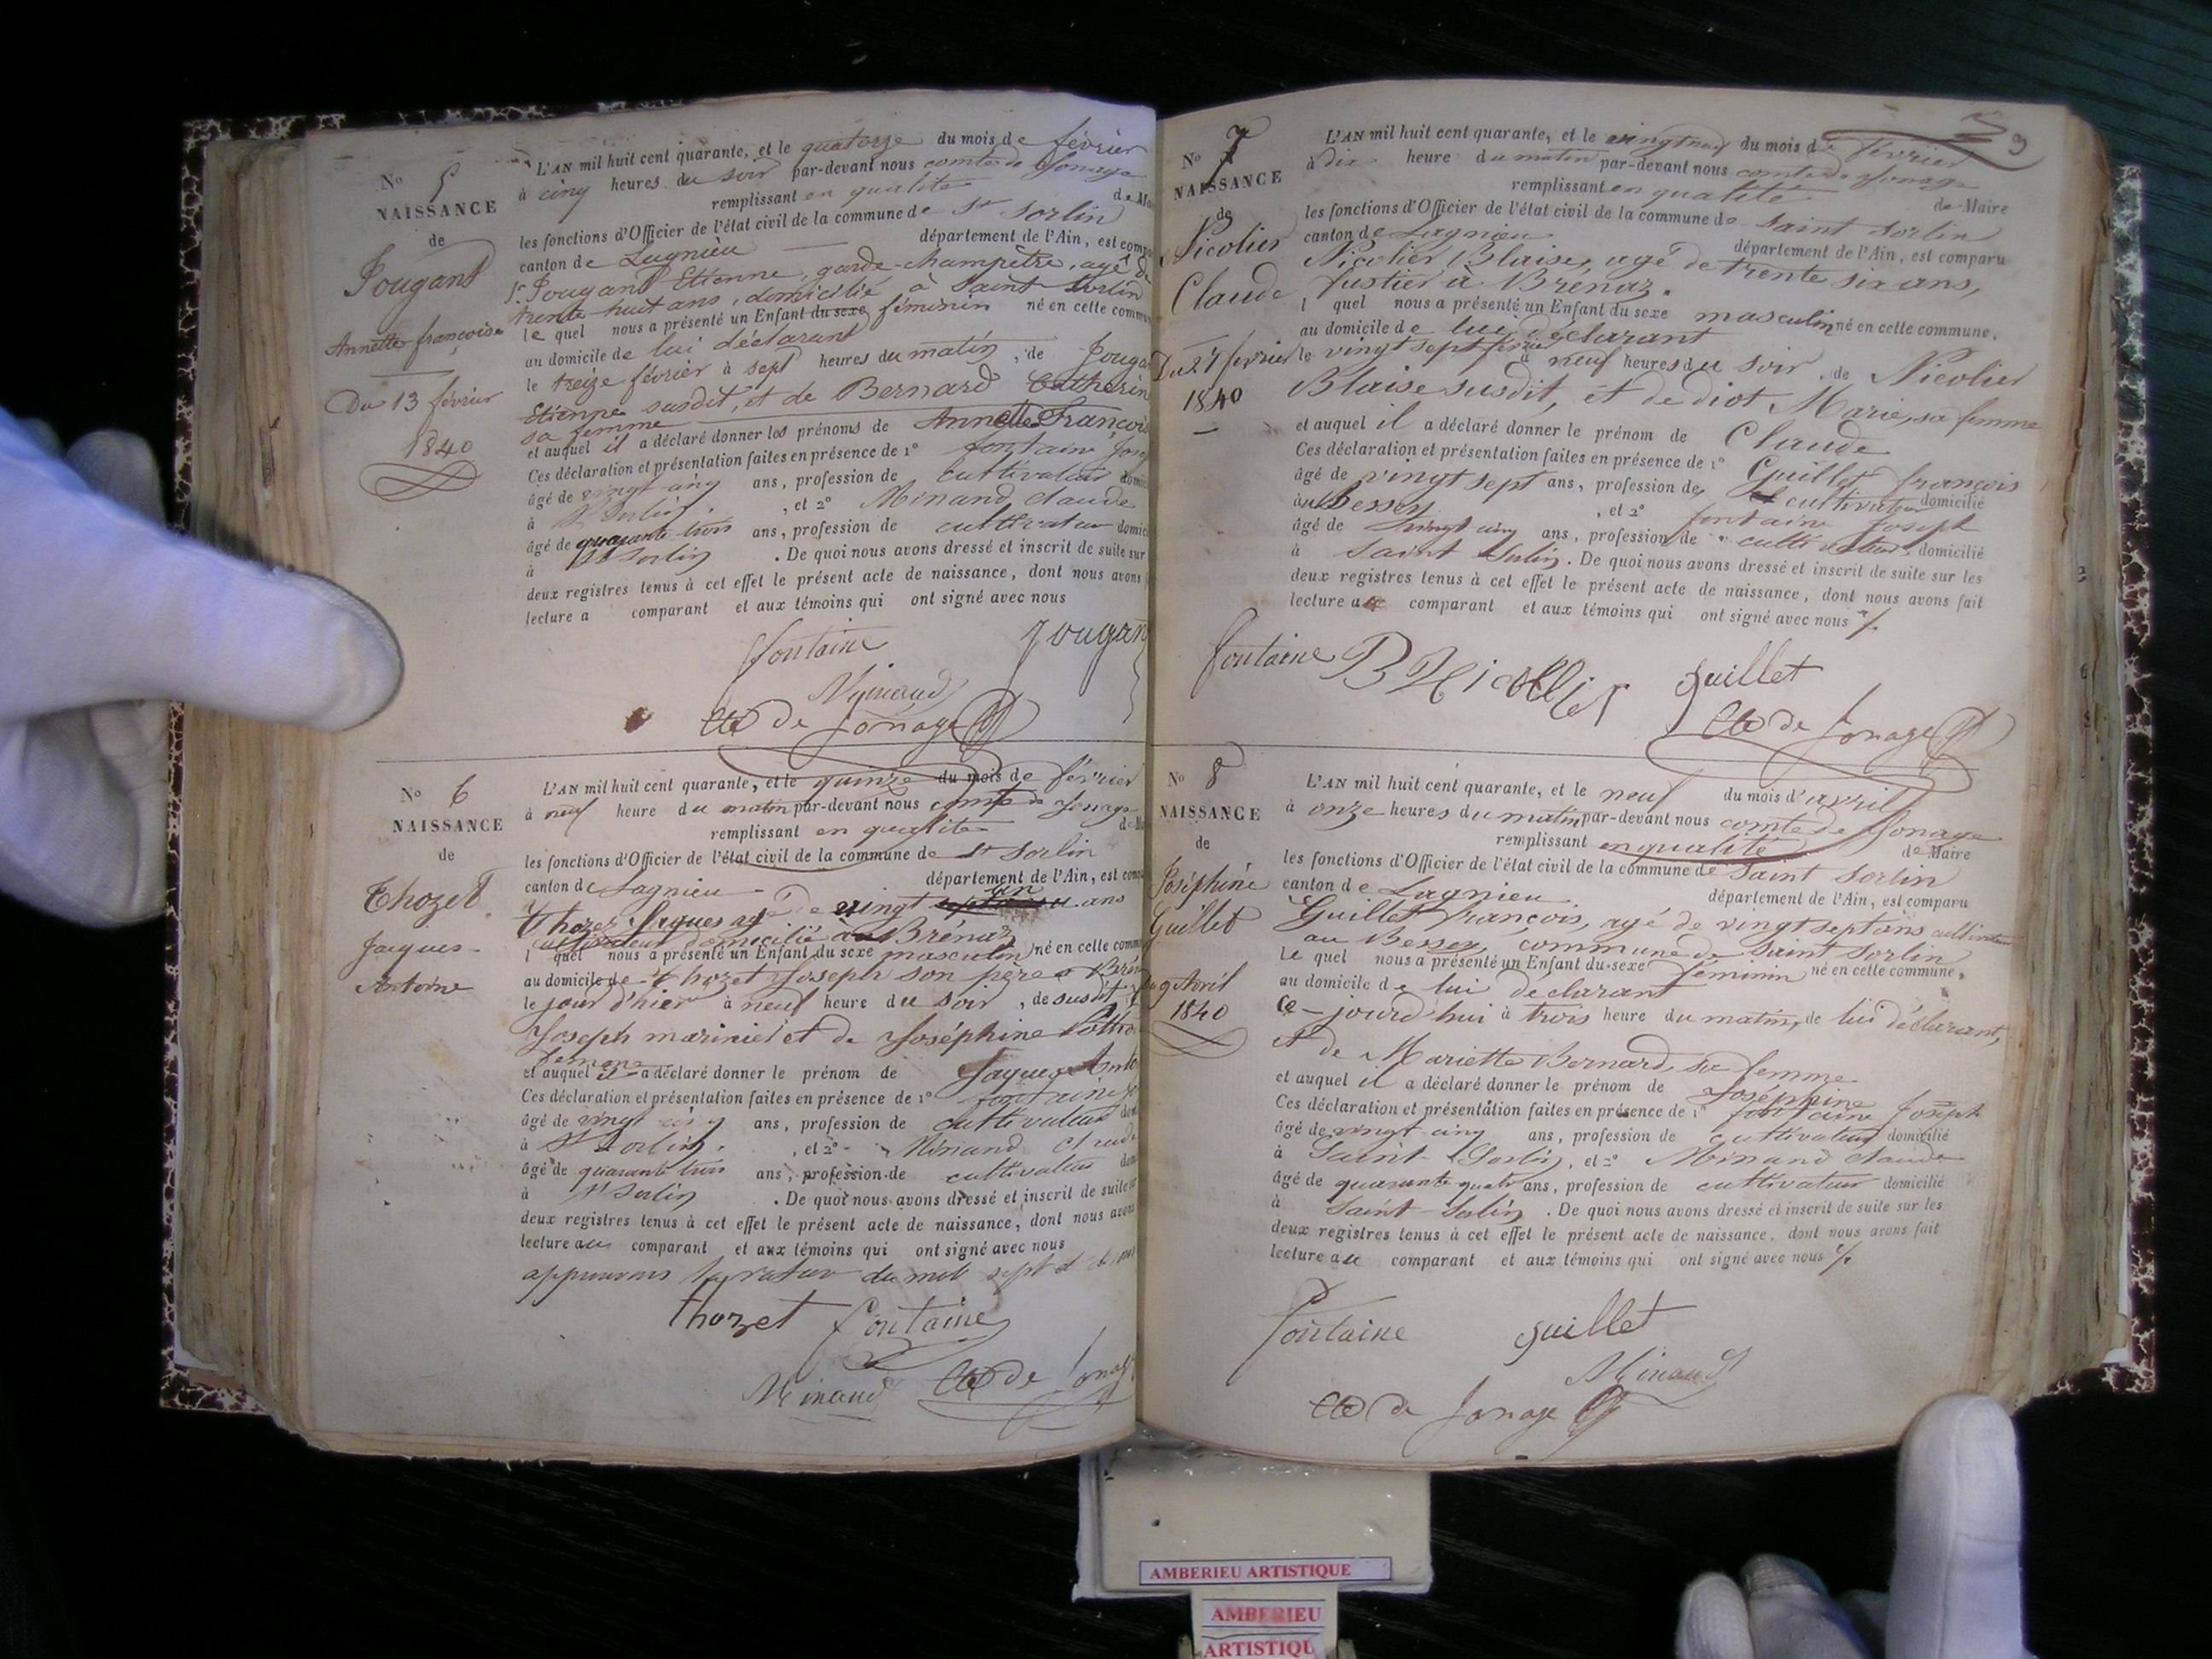 No 5
NAISSANCE
de
Jougant
Annette françoise
Du 13 février
1840
L'AN mil huit cent quarante, et le quatorze du mois de février
à cinq heures du soir par-devant nous comte de Jonage
remplissant en qualité de
les fonctions d'Officier de l'état civil de la commune de St Sorlin
canton de Lagnieu département de l'Ain, est
Jougant Etienne, garde-champêtre, agé de
trente huit ans, domicilié à Saint Sorlin
le quel nous a présenté un Enfant du sexe féminin né en cette
au domicile de lui déclarant
le treize février à sept heures du matin, de
Etienne susdit, et de Bernard
sa femme
et auquel il a déclaré donner les prénoms de Annette
Ces déclaration et présentation faites en présence de 1° fontaine
âgé de vingt cinq ans, profession de cultivateur
à St Sorlin, et 2° Minand claude
âgé de quarante trois ans, profession de cultivateur
à St Sorlin. De quoi nous avons dressé et inscrit de suite sur
deux registres tenus à cet effet le présent acte de naissance, dont nous avons
lecture a comparant et aux témoins qui ont signé avec nous
fontaine
Minand
Cte de Jonage
No 6
NAISSANCE
de
Thozet
Jacques
Antoine
L'AN mil huit cent quarante, et le quinze du mois de février
à neuf heure du matin par-devant nous comte de Jonage
remplissant en qualité
les fonctions d'Officier de l'état civil de la commune de St Sorlin
canton de Lagnieu département de l'Ain, est
Thozet Jaques agé de vingt un ans
cultivateur domicilié à Brénaz
l quel nous a présenté un Enfant du sexe masculin né en cette
au domicile de Thozet Joseph son père à
le jour d'hier à neuf heure du soir, de susdit
Joseph marinier et de Joséphine
femme
et auquel il a déclaré donner le prénom de Jaques
Ces déclaration et présentation faites en présence de 1° fontaine
âgé de vingt cinq ans, profession de cultivateur
à St Sorlin, et 2° Minand
âgé de quarante trois ans, profession de cultivateur
à St Sorlin. De quoi nous avons dressé et inscrit de suite
deux registres tenus à cet effet le présent acte de naissance, dont nous avons
lecture au comparant et aux témoins qui ont signé avec nous
approuvons la rature du mot sept
thozet fontaine
Minand Cte de
No 7
NAISSANCE
de
Nicolier
Claude
Du 27 février
1840
L'AN mil huit cent quarante, et le vingtneuf du mois de février
à dix heure du matin par-devant nous comte de Jonage
remplissant en qualité de Maire
les fonctions d'Officier de l'état civil de la commune de Saint Sorlin
canton de Lagnieu département de l'Ain, est comparu
Nicolier Blaise, agé de trente six ans,
fustier à Brénaz.
l quel nous a présenté un Enfant du sexe masculin né en cette commune,
au domicile de lui déclarant
le vingt sept février à neuf heures du soir, de Nicolier
Blaise susdit, et de diot Marie, sa femme
et auquel il a déclaré donner le prénom de Claude
Ces déclaration et présentation faites en présence de 1° Guillet françois
âgé de vingt sept ans, profession de cultivateur domicilié
au Bessey, et 2° fontaine Joseph
âgé de vingt cinq ans, profession de cultivateur domicilié
à Saint Sorlin. De quoi nous avons dressé et inscrit de suite sur les
deux registres tenus à cet effet le présent acte de naissance, dont nous avons fait
lecture au comparant et aux témoins qui ont signé avec nous
fontaine B Nicollier guillet
Cte de Jonage
No 8
NAISSANCE
de
Joséphine
Guillet
9 Avril
1840
L'AN mil huit cent quarante, et le neuf du mois d'avril
à onze heures du matin par-devant nous comte de Jonage
remplissant en qualité de Maire
les fonctions d'Officier de l'état civil de la commune de Saint Sorlin
canton de Lagnieu département de l'Ain, est comparu
Guillet françois, agé de vingt sept ans cultivateur
au Bessey, commune de Saint Sorlin
Le quel nous a présenté un Enfant du sexe féminin né en cette commune,
au domicile de lui declarant
Ce-jourd'hui à trois heure du matin, de lui déclarant,
et de Mariette Bernard, sa femme
et auquel il a déclaré donner le prénom de Joséphine
Ces déclaration et présentation faites en présence de 1° fontaine Joseph
âgé de vingt cinq ans, profession de cultivateur domicilié
à Saint-Sorlin, et 2° Minand claude
âgé de quarante quatre ans, profession de cultivateur domicilié
à Saint-Sorlin. De quoi nous avons dressé et inscrit de suite sur les
deux registres tenus à cet effet le présent acte de naissance, dont nous avons fait
lecture au comparant et aux témoins qui ont signé avec nous
fontaine guillet
Minand
Cte de Jonage
AMBERIEU ARTISTIQUE
AMBERIEU